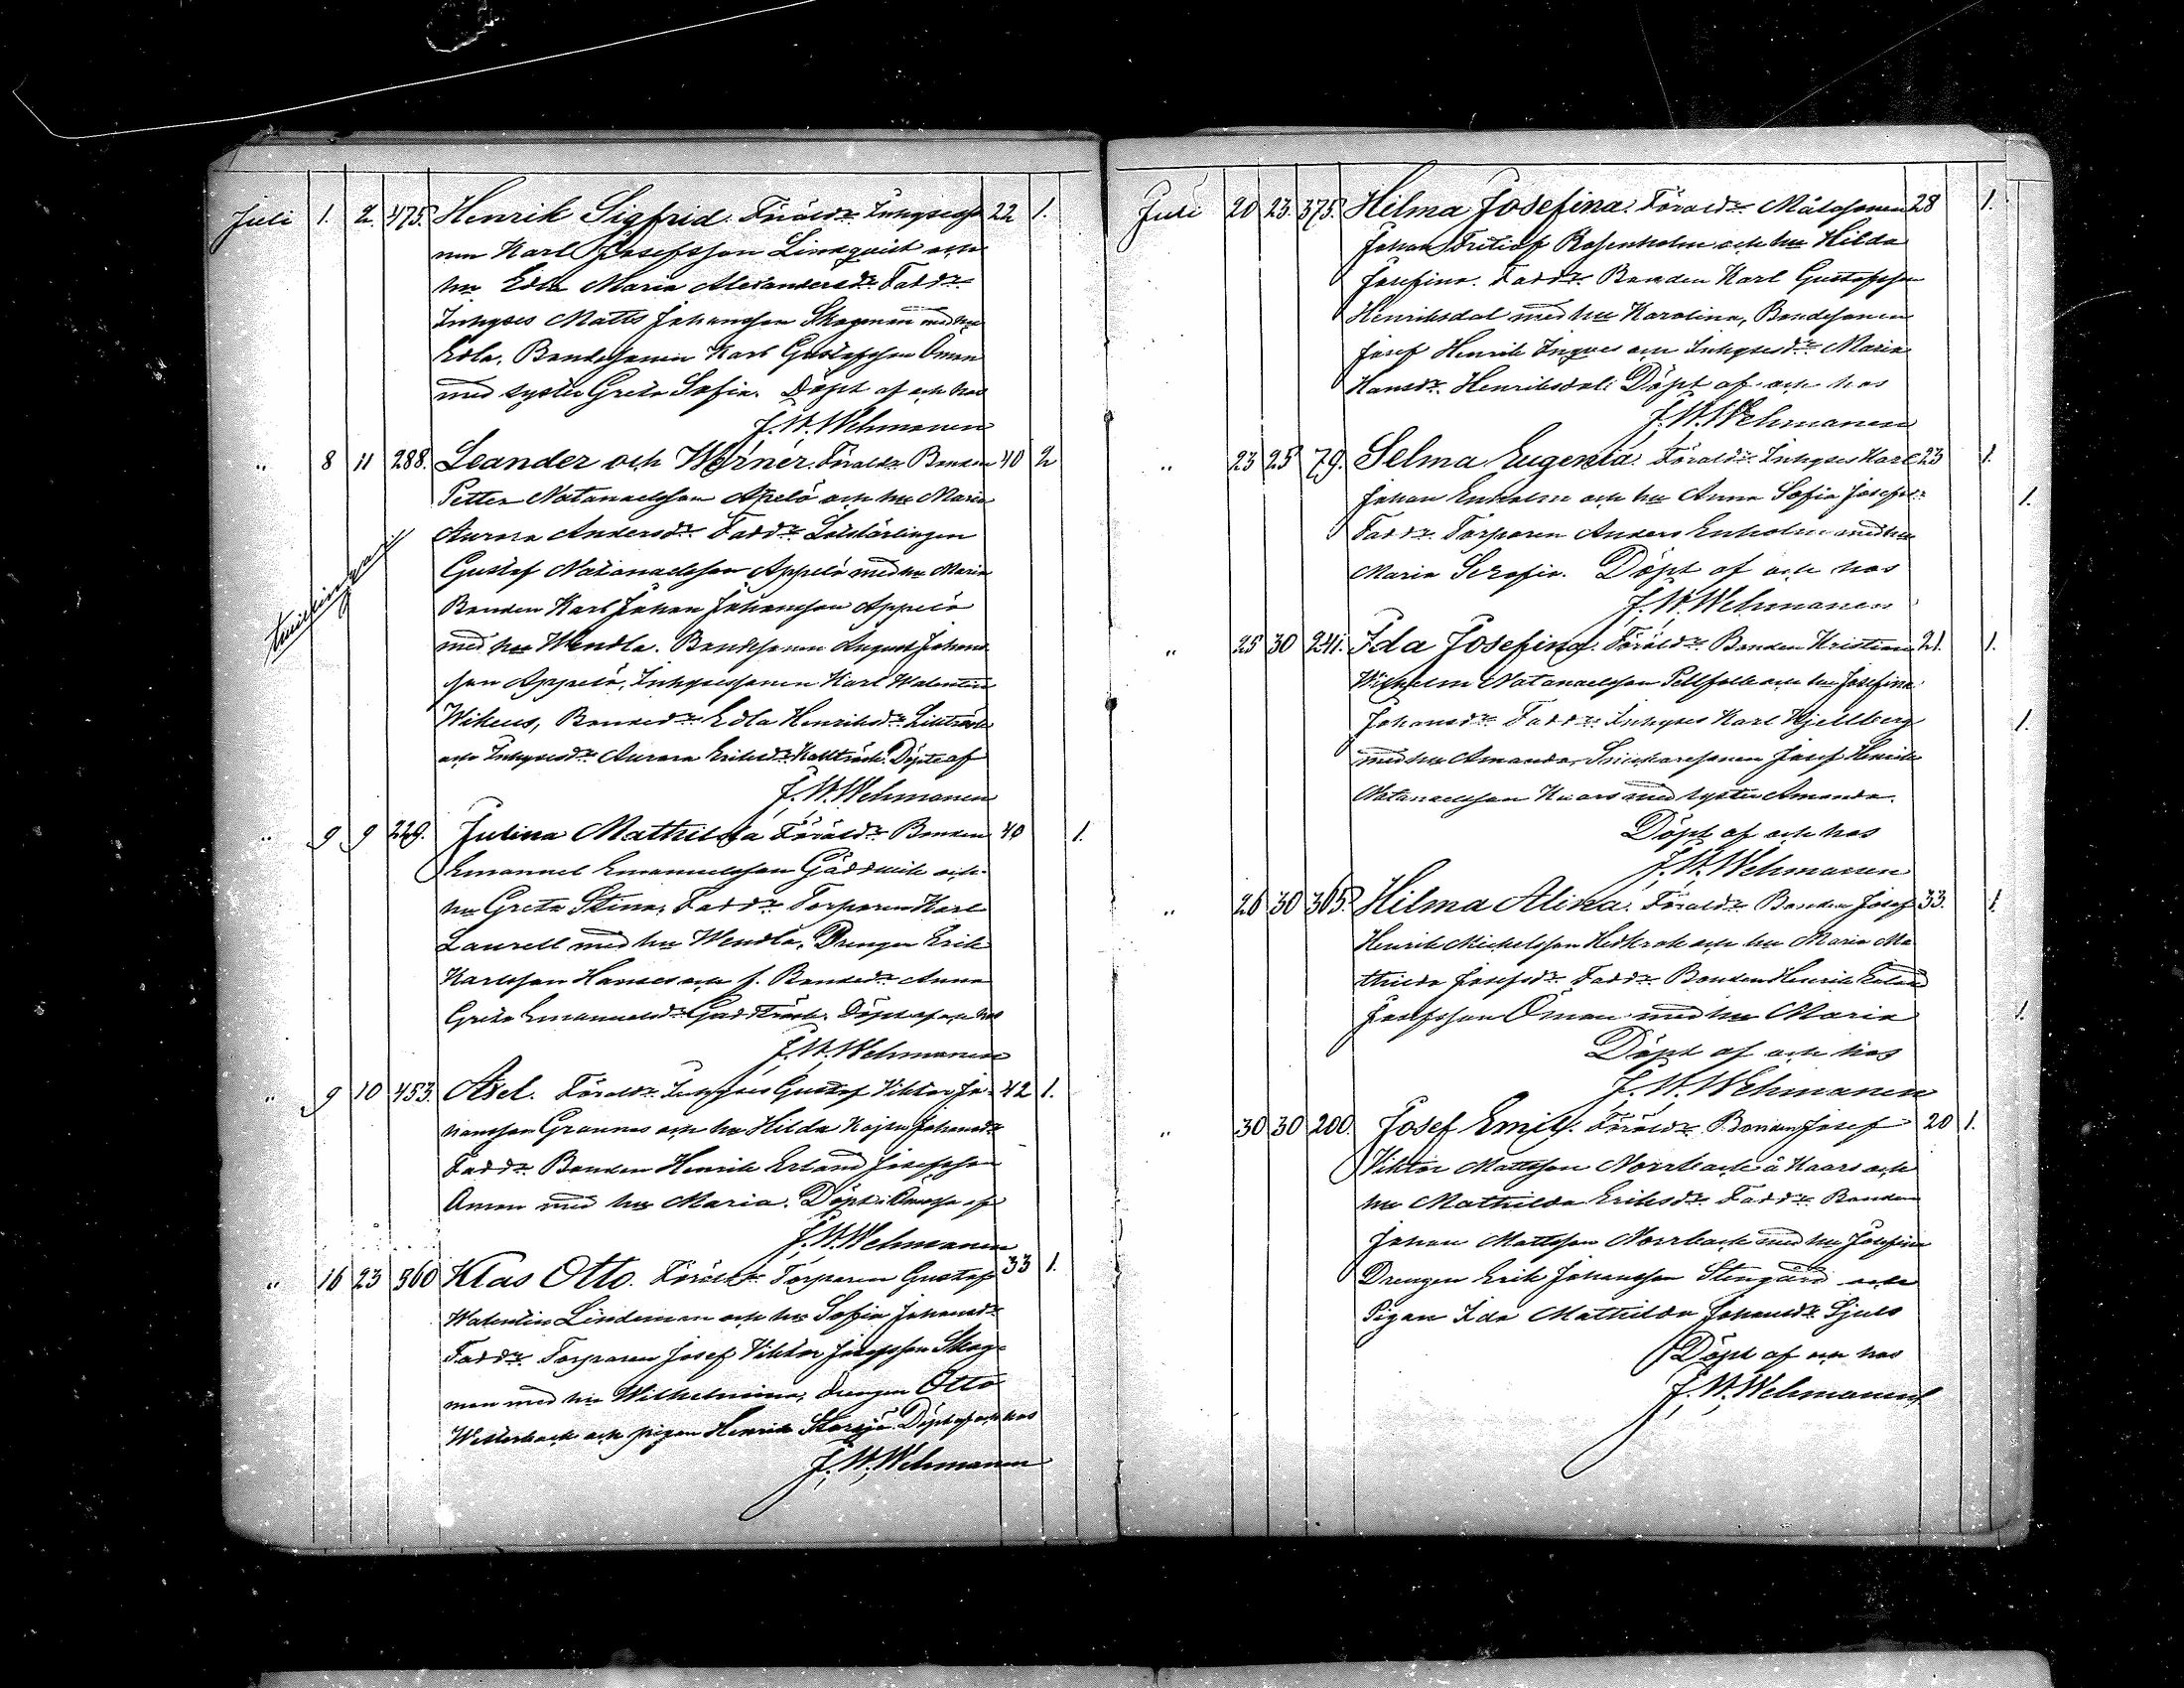 Juli 1. 2. 475. Henrik Sigfrid. Föräldr Inhysesso 22 1.
nen Karl Josefsson Lindqvist och
hu Edla Maria Alexandersdr Faddr
Inhyses Matts Johansson Skogman med hu
Edla, Bondesonen Karl Gustafsson Öman
med syster Greta Sofia. Döpt af och hos
J. W. Wehmanen
" 8 11 288. Leander och Werner. Föräldr Bonden 40 2
Petter Natanaelsson Apelö och hu Maria
Aurora Andersdr Faddr
Gustaf Natanaelsson Appelö med hu Maria
Bonden Karl Johan Johansson Appelö
med hu Wendla. Bondesonen August Johans
son Appelö, Inhysessonen Karl Walentin
Bondedr Edla Henriksdr
och Inhysesdr Aurora Eriksdr Döpte af
J. W. Wehmanen
tvillingar
" 9 9 229. Julina Mathilda Föräldr Bonden 40 1.
Emanuel Emanuelsson och
hu Greta Stina. Faddr Torparen Karl
Laurell med hu Wendla, Drengen Erik
Karlsson och f. Bondedr Anna
Greta Emanuelsdr Döpt af och hos
J. W. Wehmanen
" 9 10 453. Axel. Föräldr Inhyses Gustaf Viktor Jo- 42 1.
hansson Grannas och hu Hilda Kajsa Johansdr
Faddr Bonden Henrik Erland Josefsson
Öman med hu Maria. Döpt i af
J. W. Wehmanen
" 16 23 360 Klas Otto. Föräldr Torparen Gustaf 33 1.
Walentin Lindeman och hu Sofia Johansdr
Faddr Torparen Josef Viktor Josefsson Skog-
man med hu Wilhelmina, drengen Otto
Westerback och pigan Henrika Storsjö. Döpt af och hos
J. W. Wehmanen
Juli 20 23. 375. Hilma Josefina. Föräldr Målesonen 28 1.
Johan Fritiof Rosenholm och hu Hilda
Josefina. Faddr Bonden Karl Gustafsson
Henriksdal med hu Karolina, Bondesonen
Josef Henrik Ingves och Inhysesdr Maria
Hansdr Henriksdal. Döpt af och hos
J. W. Wehmanen
" 23 25 79. Selma Eugenia. Föräldr Inhyses Karl 23 1.
Johan Enholm och hu Anna Sofia Josefsdr 1.
Faddr Torparen Anders Enholm med hu
Maria Serafia. Döpt af och hos
J. W. Wehmanen
" 25 30 241. Ida Josefina. Föräldr Bonden Kristian 21. 1.
Wilhelm Natanaelsson Pellfolk och hu Josefina
Johansdr Faddr Inhyses Karl Kjellberg 1.
med hu Amanda, Snickaresonen Josef Henrik
Natanaelsson Kaars med syster Amanda.
Döpt af och hos
J. W. Wehmanen
" 26 30 305. Hilma Alina. Föräldr Bonden Josef 33. 1
Henrik Mickelsson Hedkrok och hu Maria Ma
thilda Josefsdr Faddr Bonden Henrik Erland
Josefsson Öman med hu Maria 1.
Döpt af och hos
J. W. Wehmanen
" 30 30 200. Josef Emil. Föräldr Bonden Josef 20 1.
Viktor Mattsson Norrback å Kaars och
hu Mathilda Eriksdr Faddr Bonden
Johan Mattsson Norrback med hu Josefina
Drengen Erik Johansson Stengård och
Pigan Ida Mathilda Johansdr Sjuls
Döpt af och hos
J. W. Wehmanen